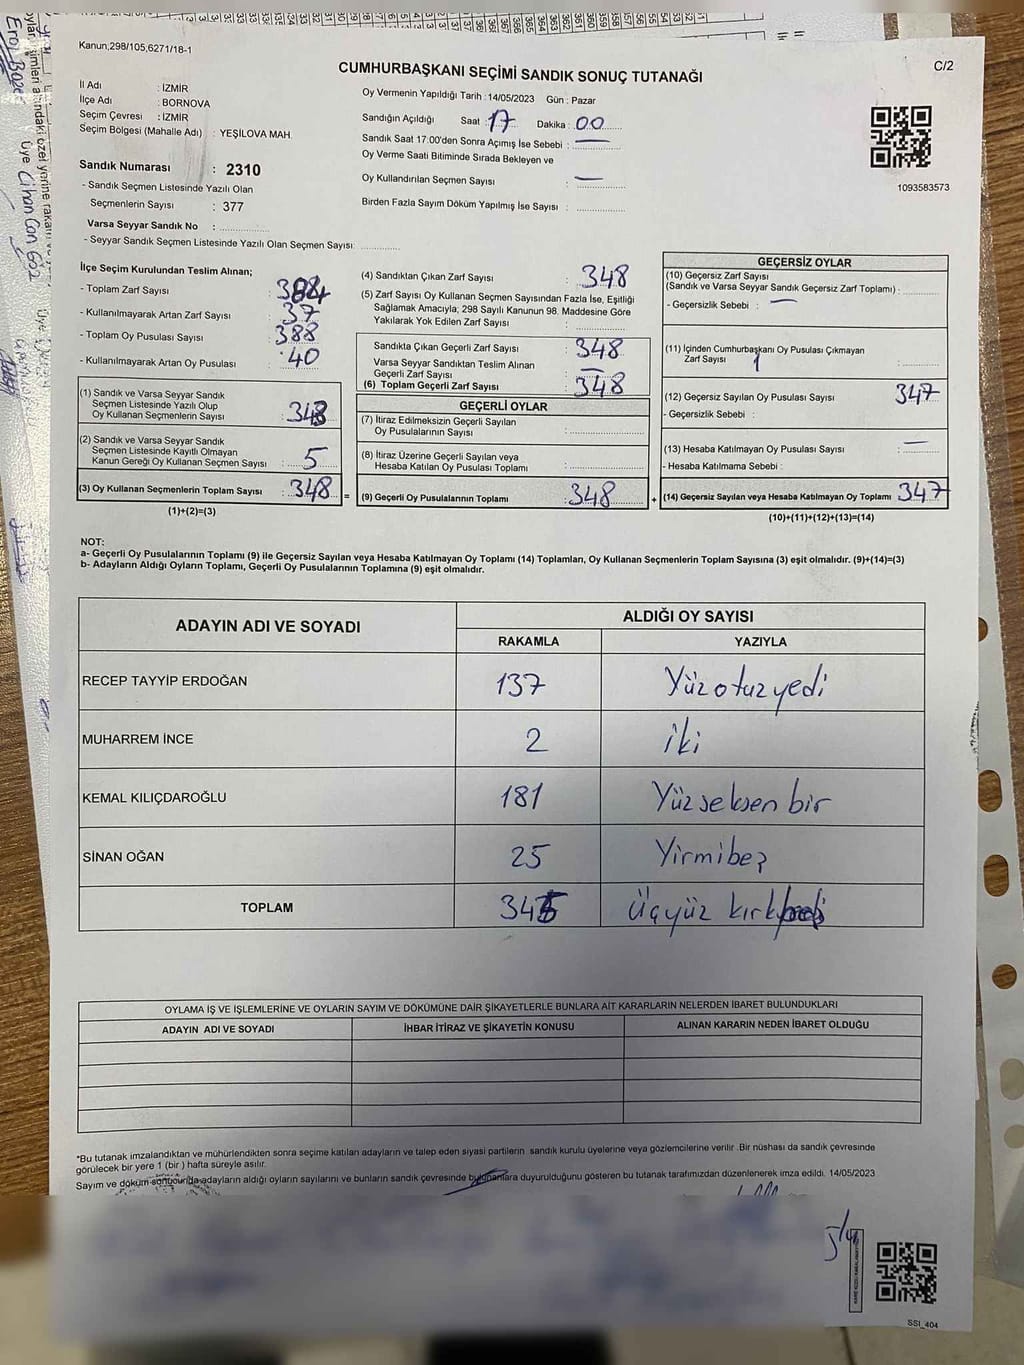 Kanun;298/105;6271/18-1
C/2
CUMHURBAŞKANI SEÇİMİ SANDIK SONUÇ TUTANAĞI
İl Adı : İZMİR
İlçe Adı : BORNOVA
Seçim Çevresi : İZMİR
Seçim Bölgesi (Mahalle Adı) : YEŞİLOVA MAH.
Oy Vermenin Yapıldığı Tarih : 14/05/2023 Gün : Pazar
Sandığın Açıldığı Saat : 17 Dakika : 00
Sandık Saat 17:00'den Sonra Açımış İse Sebebi : —
Oy Verme Saati Bitiminde Sırada Bekleyen ve
Oy Kullandırılan Seçmen Sayısı : —
Birden Fazla Sayım Döküm Yapılmış İse Sayısı :
1093583573
Sandık Numarası : 2310
- Sandık Seçmen Listesinde Yazılı Olan
Seçmenlerin Sayısı : 377
Varsa Seyyar Sandık No :
- Seyyar Sandık Seçmen Listesinde Yazılı Olan Seçmen Sayısı:
İlçe Seçim Kurulundan Teslim Alınan;
- Toplam Zarf Sayısı :
- Kullanılmayarak Artan Zarf Sayısı : 37
- Toplam Oy Pusulası Sayısı : 388
- Kullanılmayarak Artan Oy Pusulası : 40
(1) Sandık ve Varsa Seyyar Sandık
Seçmen Listesinde Yazılı Olup
Oy Kullanan Seçmenlerin Sayısı :
(2) Sandık ve Varsa Seyyar Sandık
Seçmen Listesinde Kayıtlı Olmayan
Kanun Gereği Oy Kullanan Seçmen Sayısı : 5
(3) Oy Kullanan Seçmenlerin Toplam Sayısı : 348 =
(1)+(2)=(3)
(4) Sandıktan Çıkan Zarf Sayısı : 348
(5) Zarf Sayısı Oy Kullanan Seçmen Sayısından Fazla İse, Eşitliği
Sağlamak Amacıyla; 298 Sayılı Kanunun 98. Maddesine Göre
Yakılarak Yok Edilen Zarf Sayısı :
Sandıkta Çıkan Geçerli Zarf Sayısı : 348
Varsa Seyyar Sandıktan Teslim Alınan
Geçerli Zarf Sayısı : —
(6) Toplam Geçerli Zarf Sayısı : 348
GEÇERLİ OYLAR
(7) İtiraz Edilmeksizin Geçerli Sayılan
Oy Pusulalarının Sayısı :
(8) İtiraz Üzerine Geçerli Sayılan veya
Hesaba Katılan Oy Pusulası Toplamı :
(9) Geçerli Oy Pusulalarının Toplamı : 348 +
GEÇERSİZ OYLAR
(10) Geçersiz Zarf Sayısı
(Sandık ve Varsa Seyyar Sandık Geçersiz Zarf Toplamı) :
- Geçersizlik Sebebi : —
(11) İçinden Cumhurbaşkanı Oy Pusulası Çıkmayan
Zarf Sayısı 1 :
(12) Geçersiz Sayılan Oy Pusulası Sayısı : 347
- Geçersizlik Sebebi :
(13) Hesaba Katılmayan Oy Pusulası Sayısı : —
- Hesaba Katılmama Sebebi :
(14) Geçersiz Sayılan veya Hesaba Katılmayan Oy Toplamı : 347
(10)+(11)+(12)+(13)=(14)
NOT:
a- Geçerli Oy Pusulalarının Toplamı (9) ile Geçersiz Sayılan veya Hesaba Katılmayan Oy Toplamı (14) Toplamları, Oy Kullanan Seçmenlerin Toplam Sayısına (3) eşit olmalıdır. (9)+(14)=(3)
b- Adayların Aldığı Oyların Toplamı, Geçerli Oy Pusulalarının Toplamına (9) eşit olmalıdır.
ADAYIN ADI VE SOYADI
ALDIĞI OY SAYISI
RAKAMLA YAZIYLA
RECEP TAYYİP ERDOĞAN 137 Yüzotuzyedi
MUHARREM İNCE 2 iki
KEMAL KILIÇDAROĞLU 181 Yüzseksen bir
SİNAN OĞAN 25 Yirmibeş
TOPLAM 345 Üçyüz kırkbeş
OYLAMA İŞ VE İŞLEMLERİNE VE OYLARIN SAYIM VE DÖKÜMÜNE DAİR ŞİKAYETLERLE BUNLARA AİT KARARLARIN NELERDEN İBARET BULUNDUKLARI
ADAYIN ADI VE SOYADI İHBAR İTİRAZ VE ŞİKAYETİN KONUSU ALINAN KARARIN NEDEN İBARET OLDUĞU
*Bu tutanak imzalandıktan ve mühürlendikten sonra seçime katılan adayların ve talep eden siyasi partilerin sandık kurulu üyelerine veya gözlemcilerine verilir .Bir nüshası da sandık çevresinde
görülecek bir yere 1 (bir ) hafta süreyle asılır.
Sayım ve döküm sonucunda adayların aldığı oyların sayılarını ve bunların sandık çevresinde bulunanlara duyurulduğunu gösteren bu tutanak tarafımızdan düzenlenerek imza edildi. 14/05/2023
SSİ_404